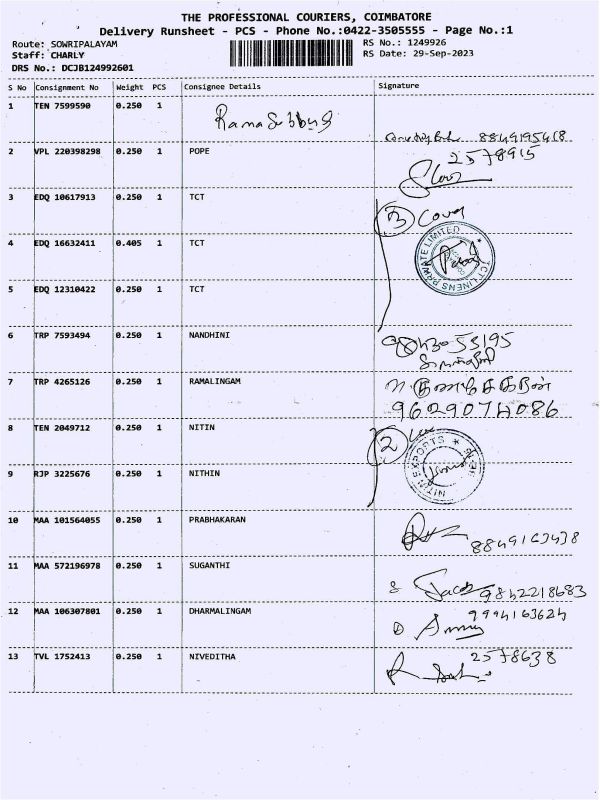 THE PROFESSIONAL COURIERS, COIMBATORE
Delivery Runsheet - PCS - Phone No.:0422-3505555 - Page No.:1
Route: SOWRIPALAYAM RS No.: 1249926
Staff: CHARLY RS Date: 29-Sep-2023
DRS No.: DCJB124992601
S No Consignment No Weight PCS Consignee Details Signature
1 TEN 7599590 0.250 1
2 VPL 220398298 0.250 1 POPE 2578915
3 EDQ 10617913 0.250 1 TCT 3 Cover
4 EDQ 16632411 0.405 1 TCT TCT LINENS PRIVATE LIMITED
5 EDQ 12310422 0.250 1 TCT
6 TRP 7593494 0.250 1 NANDHINI
7 TRP 4265126 0.250 1 RAMALINGAM
9629074086
8 TEN 2049712 0.250 1 NITIN 2
NITIN EXPORTS
9 RJP 3225676 0.250 1 NITHIN
10 MAA 101564055 0.250 1 PRABHAKARAN
11 MAA 572196978 0.250 1 SUGANTHI 9842218683
12 MAA 106307801 0.250 1 DHARMALINGAM
13 TVL 1752413 0.250 1 NIVEDITHA 2578638